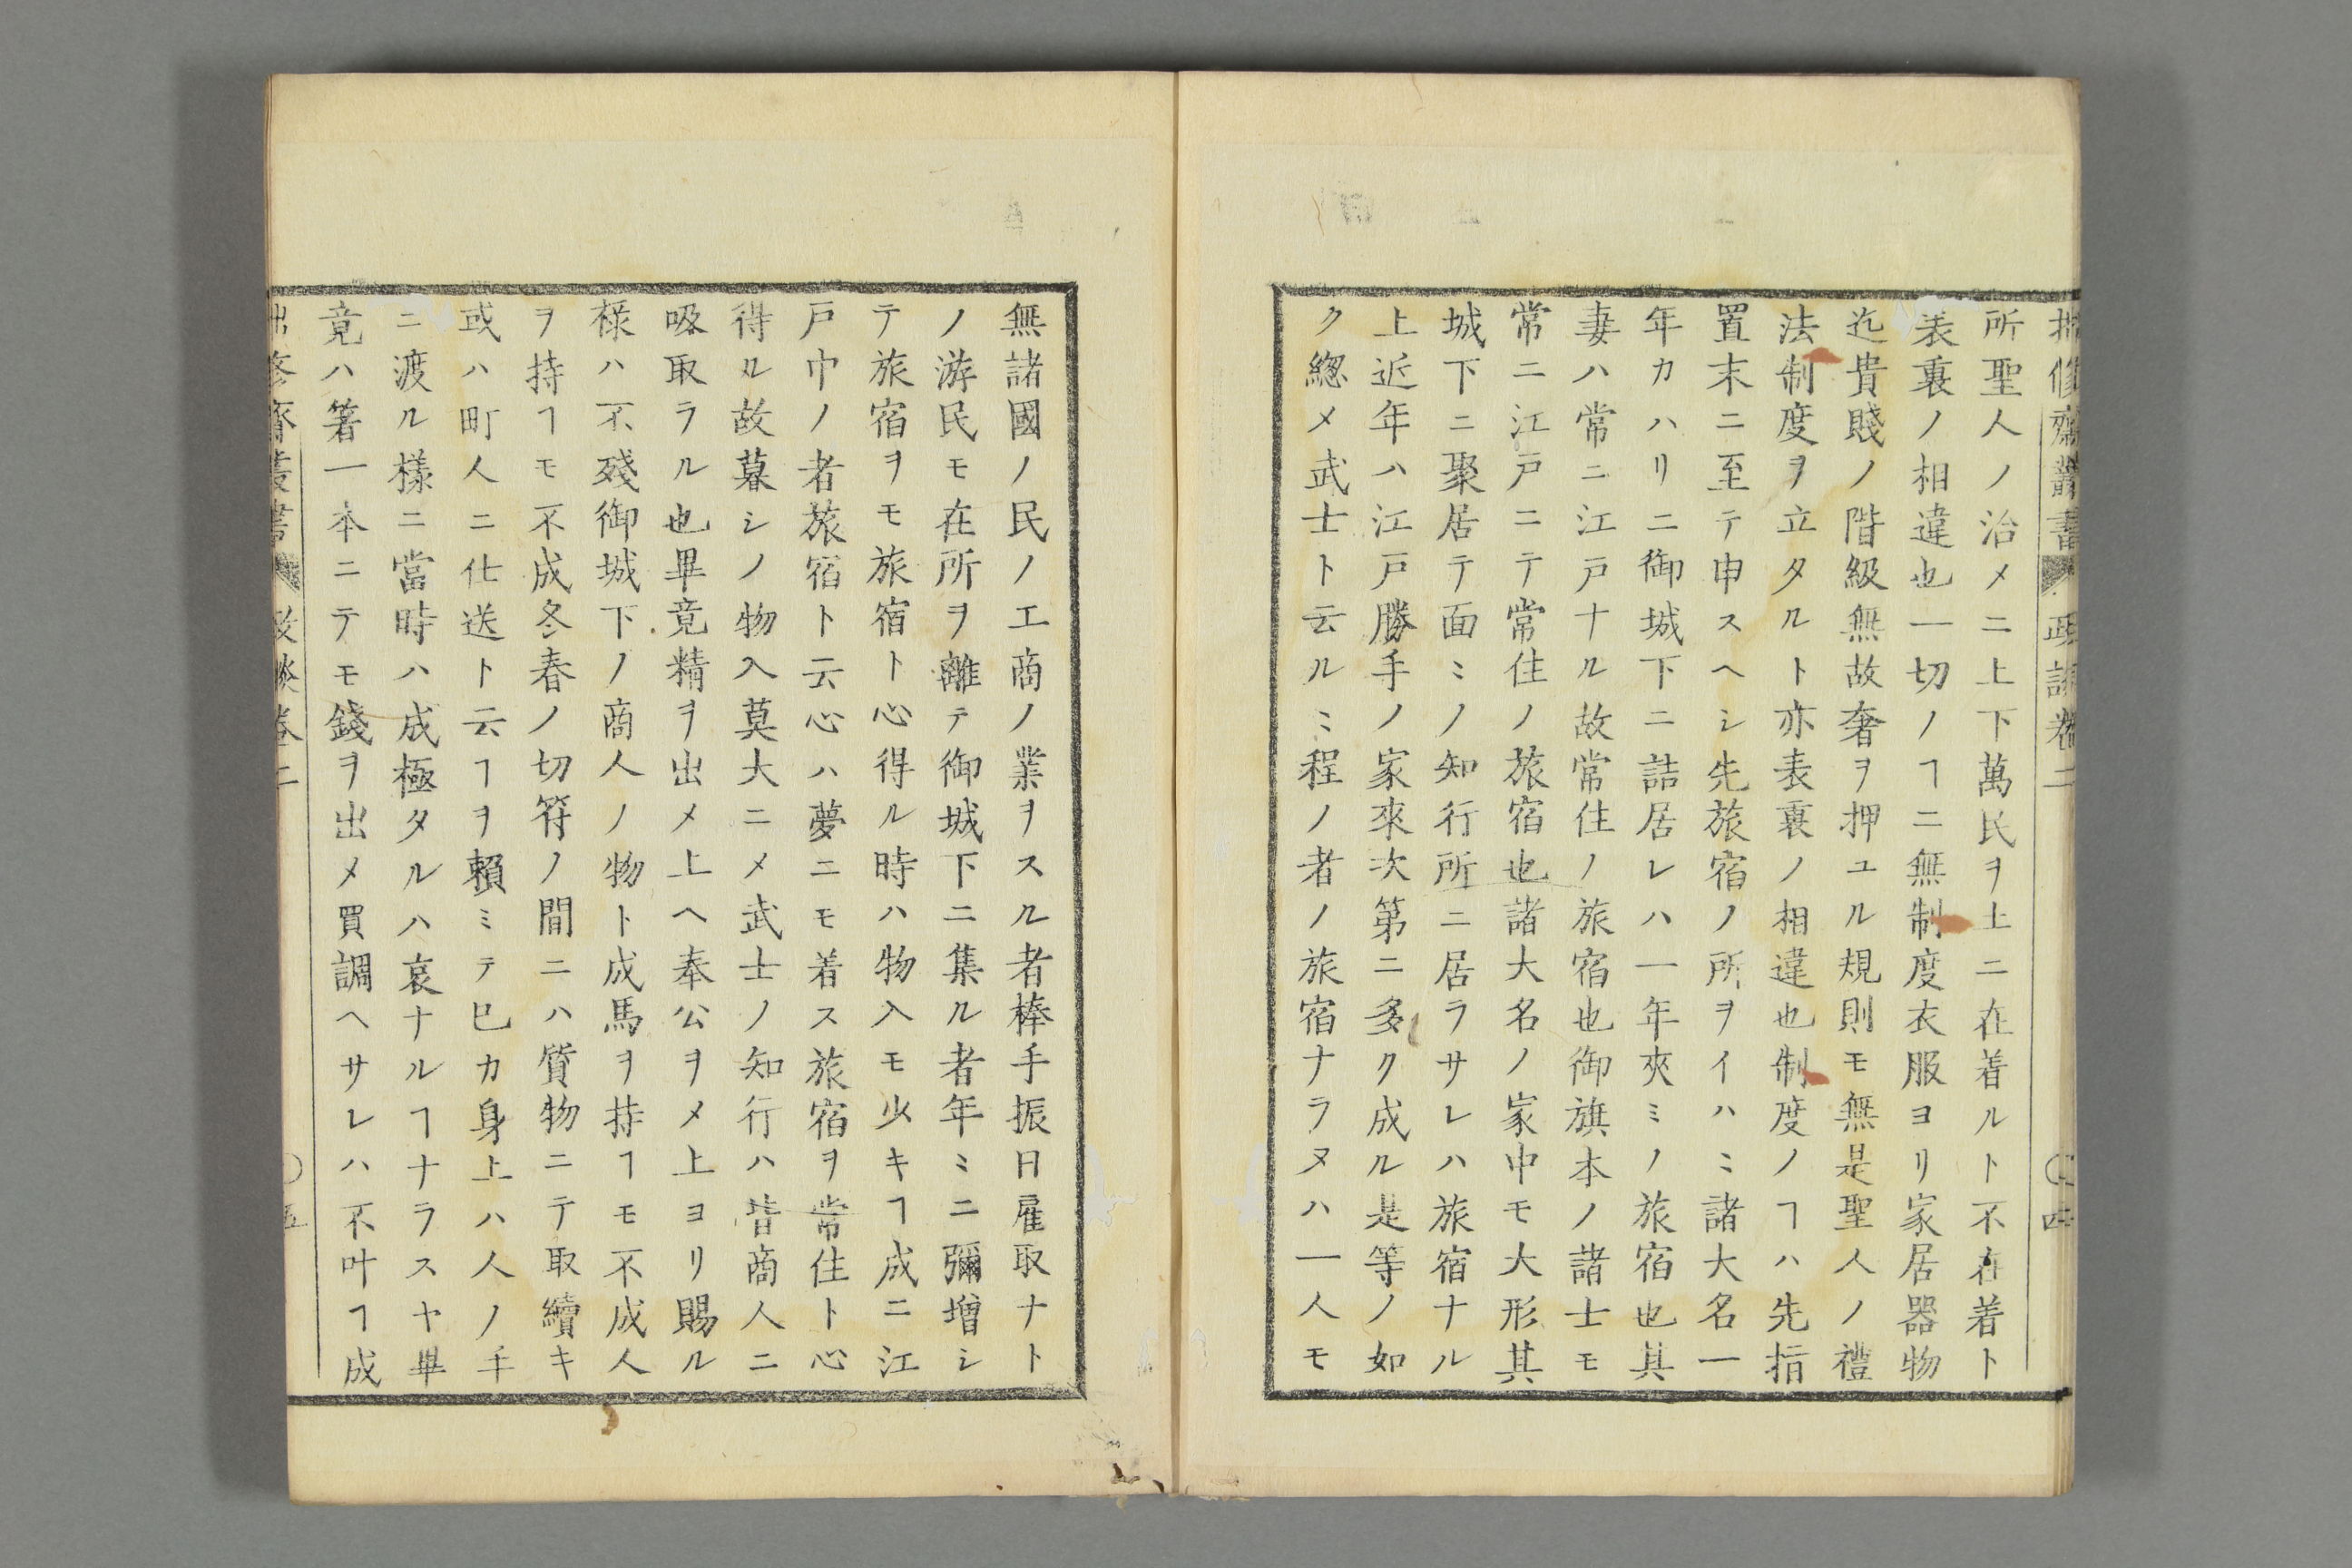 拙修齋叢書 政談卷二 〇四
所聖人ノ治メニ上下萬民ヲ土ニ在着ルト不在着ト
表裏ノ相違也一切ノヿニ無制度衣服ヨリ家居器物
迄貴賤ノ階級無故奢ヲ押ユル規則モ無是聖人ノ禮
法制度ヲ立タルト亦表裏ノ相違也制度ノヿハ先指
置末ニ至テ申スヘシ先旅宿ノ所ヲイハミ諸大名一
年カハリニ御城下ニ詰居レハ一年夾ミノ旅宿也其
妻ハ常ニ江戸ナル故常住ノ旅宿也御旗本ノ諸士モ
常ニ江戸ニテ常住ノ旅宿也諸大名ノ家中モ大形其
城下ニ聚居テ面ミノ知行所ニ居ラサレハ旅宿ナル
上近年ハ江戸勝手ノ家來次第ニ多ク成ル是等ノ如
ク總メ武士ト云ルミ程ノ者ノ旅宿ナラヌハ一人モ
無諸國ノ民ノ工商ノ業ヲスル者棒手振日雇取ナト
ノ游民モ在所ヲ離テ御城下ニ集ル者年ミニ彌増シ
テ旅宿ヲモ旅宿ト心得ル時ハ物入モ少キヿ成ニ江
戸中ノ者旅宿ト云心ハ夢ニモ着ス旅宿ヲ常住ト心
得ル故暮シノ物入莫大ニメ武士ノ知行ハ皆商人ニ
吸取ラル也畢竟精ヲ出メ上ヘ奉公ヲメ上ヨリ賜ル
様ハ不殘御城下ノ商人ノ物ト成馬ヲ持ヿモ不成人
ヲ持ヿモ不成冬春ノ切符ノ間ニハ質物ニテ取續キ
或ハ町人ニ仕送ト云ヿヲ頼ミテ巳カ身上ハ人ノ手
ニ渡ル様ニ當時ハ成極タルハ哀ナルヿナラスヤ畢
竟ハ箸一本ニテモ錢ヲ出メ買調ヘサレハ不叶ヿ成
拙修齋叢書 政談卷二 〇五